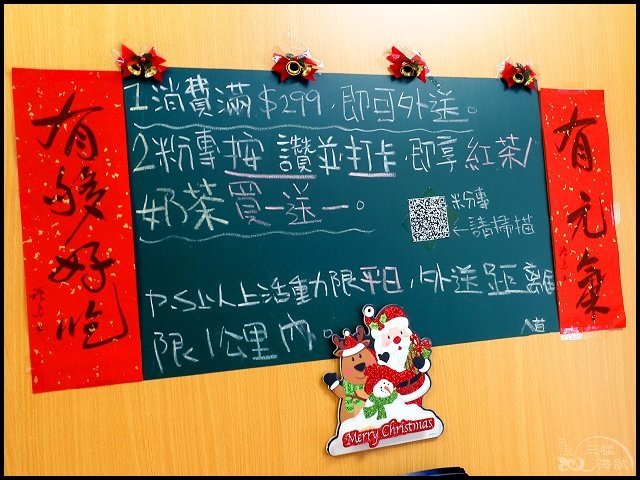 有夠好吃
1.消費滿$299,即可外送。
2.粉專按讚並打卡,即享紅茶/
奶茶買一送一。
粉專
←請掃描
P.S以上活動限平日,外送距離
限1公里內。
有元氣
Merry Christmas